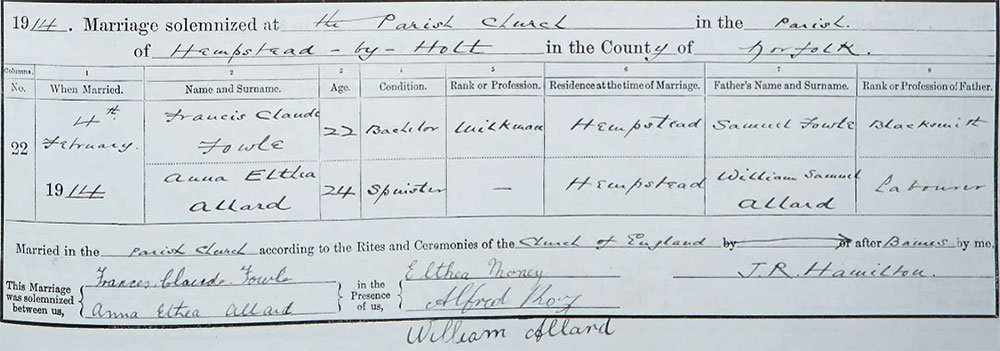 1914. Marriage solemnized at the Parish Church in the Parish.
of Hempstead - by - Holt in the County of Norfolk.
Columns. 1 2 3 4 5 6 7 8
No. When Married. Name and Surname. Age. Condition. Rank or Profession. Residence at the time of Marriage. Father's Name and Surname. Rank or Profession of Father.
22 4th February. 1914
Francis Claude Fowle 22 Bachelor Milkman Hempstead Samuel Fowle Blacksmith
Anna Elthea Allard 24 Spinster — Hempstead William Samuel Allard Labourer
Married in the Parish Church according to the Rites and Ceremonies of the Church of England by or after Banns by me,
This Marriage was solemnized between us,
Frances Claude Fowle
Anna Elthea Allard
in the Presence of us,
Elthea Money
Alfred
William Allard
J. R. Hamilton.